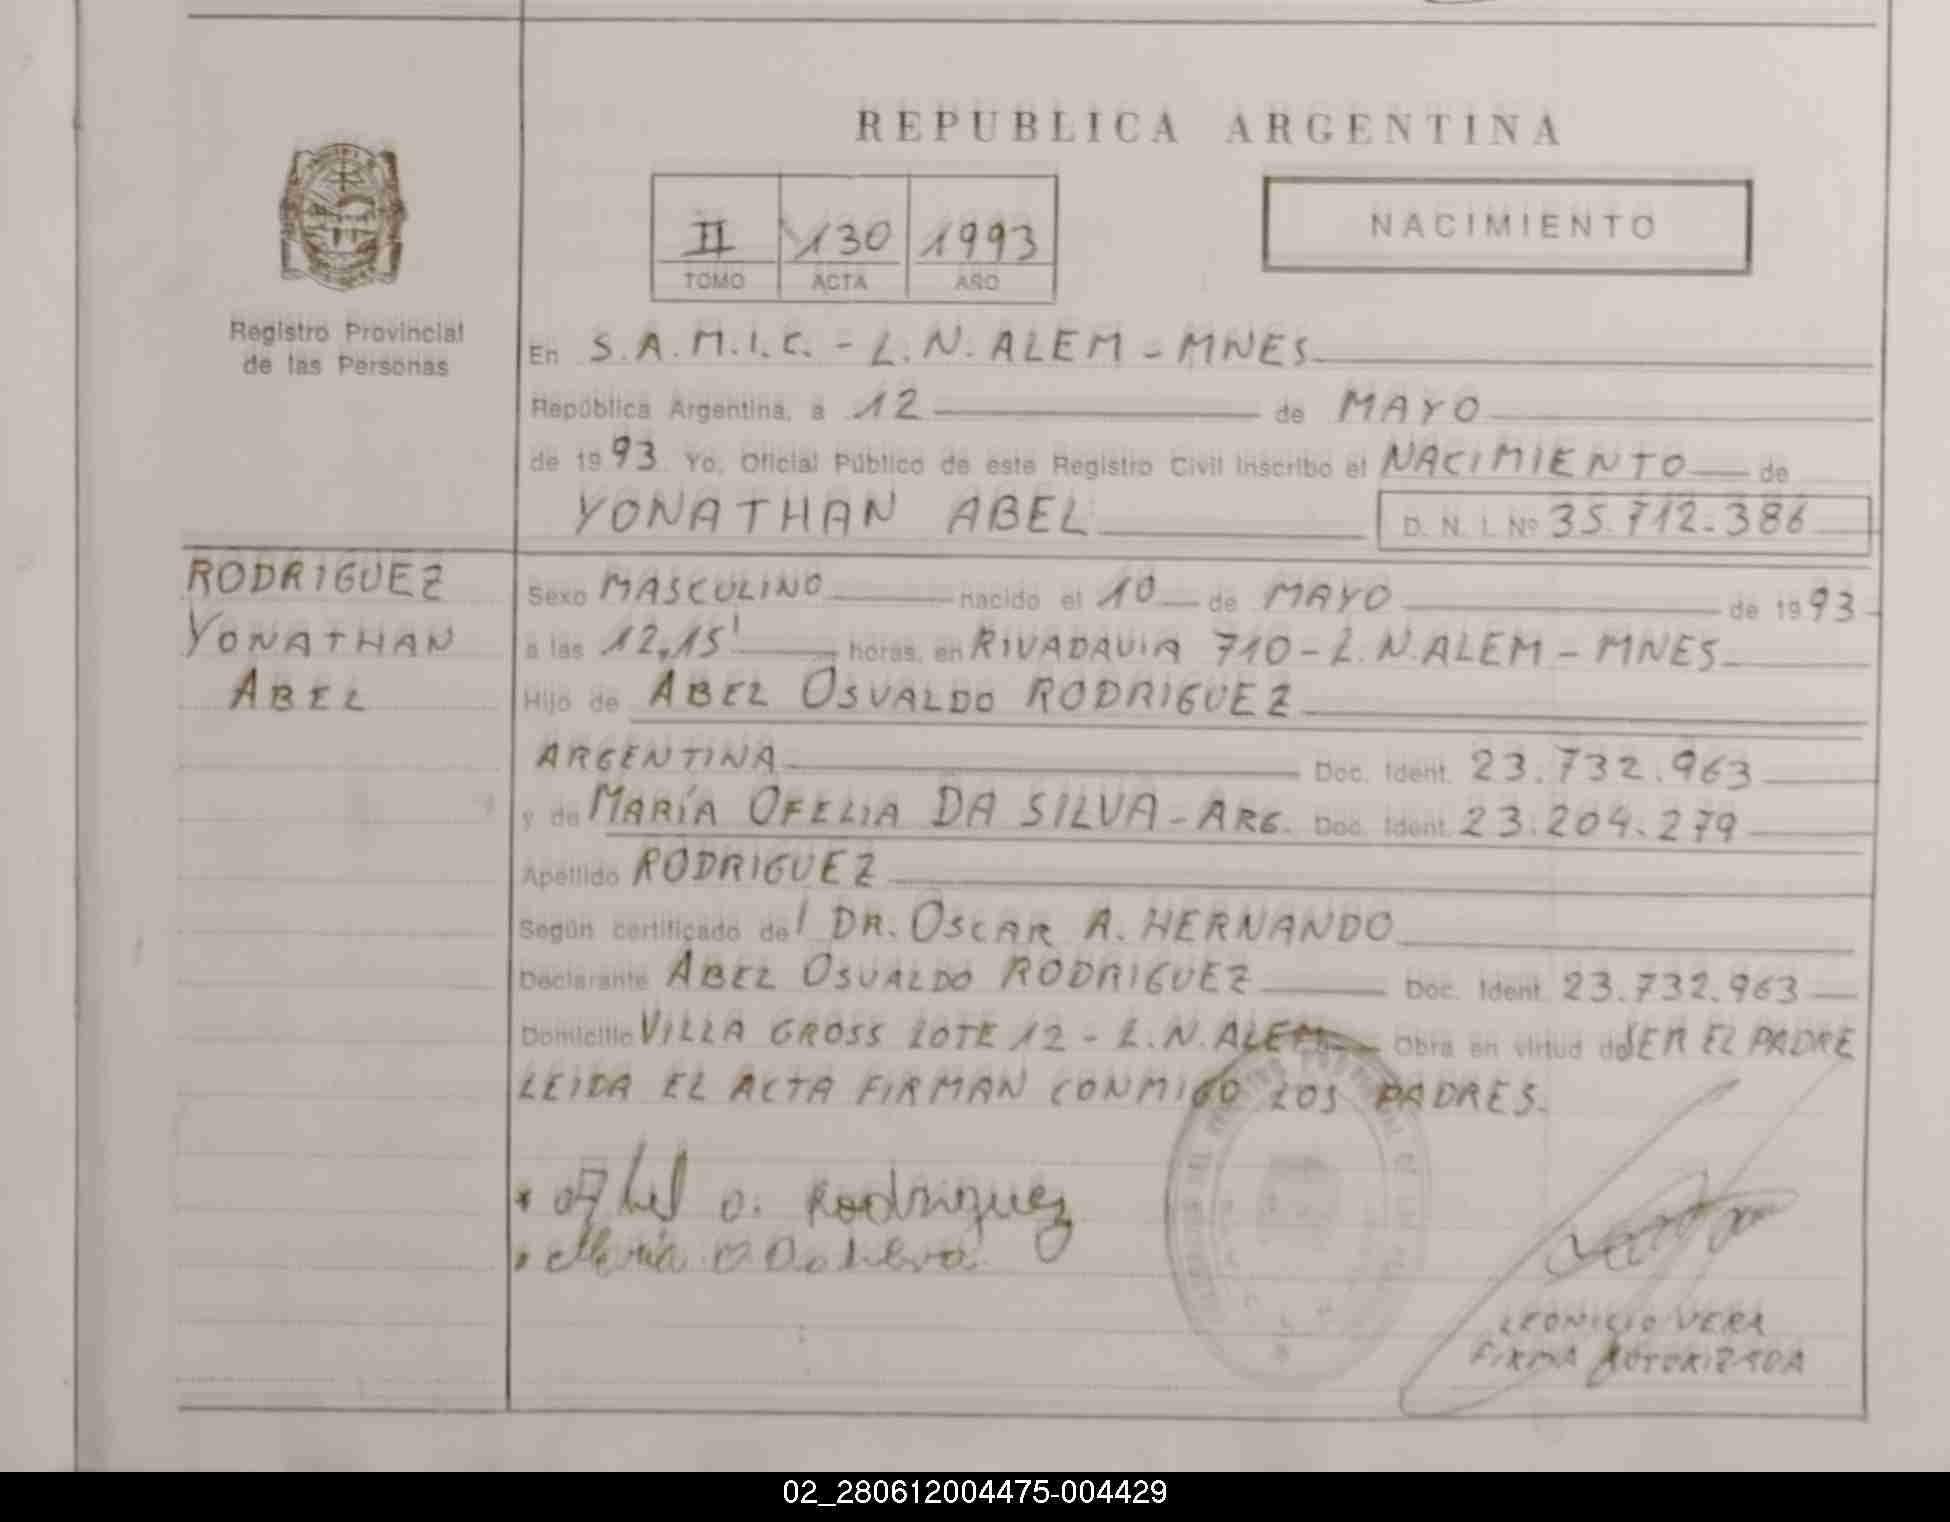 REPUBLICA ARGENTINA
NACIMIENTO
II 130 1993
TOMO ACTA AÑO
Registro Provincial
de las Personas
En S.A.M.I.C. - L.N. ALEM - MNES
República Argentina, a 12 de MAYO
de 1993 Yo, Oficial Público de este Registro Civil inscribo el NACIMIENTO de
YONATHAN ABEL D. N. I. Nº 35.712.386
RODRIGUEZ
YONATHAN
ABEL
Sexo MASCULINO nacido el 10 de MAYO de 1993
a las 12,15' horas, en RIVADAVIA 710 - L.N. ALEM - MNES
Hijo de ABEL OSVALDO RODRIGUEZ
ARGENTINA Doc. Ident. 23.732.963
y de MARÍA OFELIA DA SILVA - ARG. Doc. Ident. 23.204.279
Apellido RODRIGUEZ
Según certificado del DR. OSCAR A. HERNANDO
Declarante ABEL OSVALDO RODRIGUEZ Doc. Ident. 23.732.963
Domicilio VILLA GROSS LOTE 12 - L.N. ALEM Obra en virtud de SER EL PADRE
LEIDA EL ACTA FIRMAN CONMIGO LOS PADRES.
Abel O. Rodriguez
María O Da Silva
LEONICIO VERA
FIRMA AUTORIZADA
02_280612004475-004429